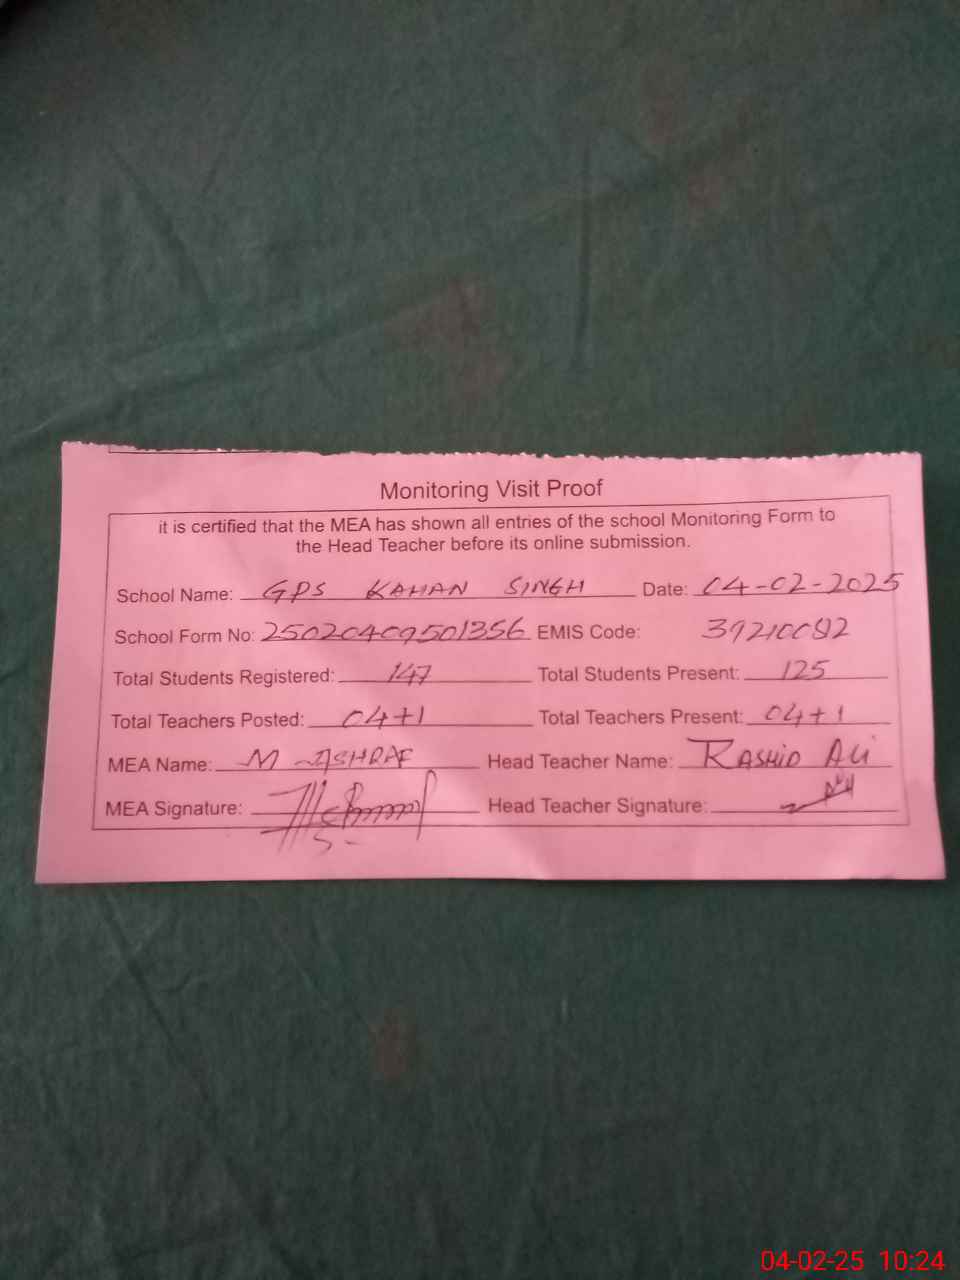 Monitoring Visit Proof
it is certified that the MEA has shown all entries of the school Monitoring Form to
the Head Teacher before its online submission.
School Name: GPS KAHAN SINGH Date: 04-02-2025
School Form No: 25020409501356 EMIS Code: 39210092
Total Students Registered: 147 Total Students Present: 125
Total Teachers Posted: 04+1 Total Teachers Present: 04+1
MEA Name: M ASHRAF Head Teacher Name: RASHID ALi
MEA Signature: Head Teacher Signature:
04-02-25 10:24